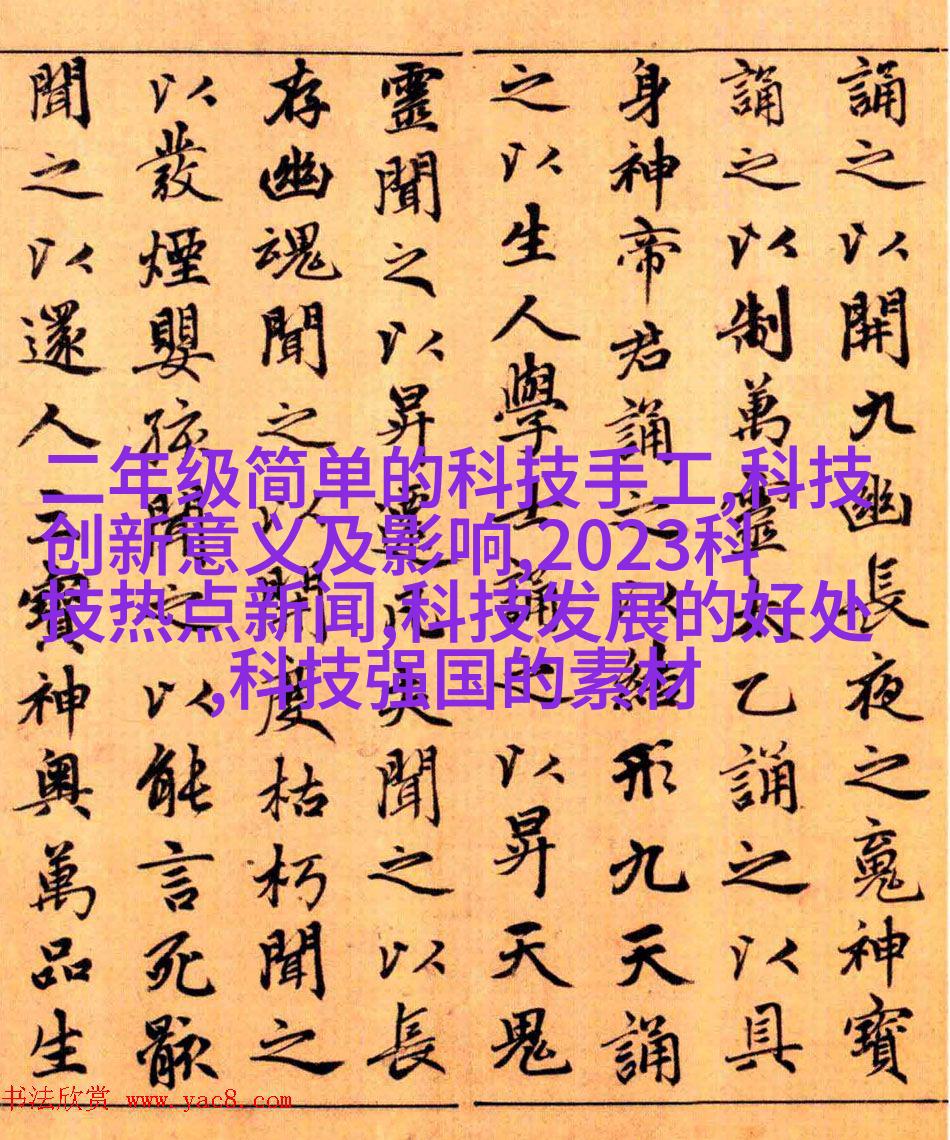 誦之以開九幽長夜之䰟神寶
誦之以制萬靈太乙誦之以具
身神帝君誦之以結形九天誦
之以生人學士誦之以昇天鬼
靈聞之以昇遷凡夫聞之以長
存幽魂聞之以開度枯朽聞之
以發煙嬰孩聞之以能言死骸
聞之以還人三寶神奧萬品生
二年级简单的科技手工,科技
创新意义及影响,2023科
技热点新闻,科技发展的好处
,科技强国的素材
书法欣赏 www.yac8.com